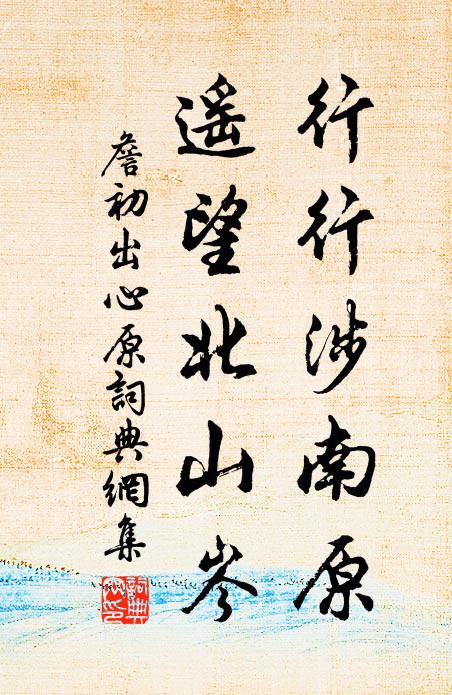 行行涉南原
遥望北山岑
詹初出心原詞典網集